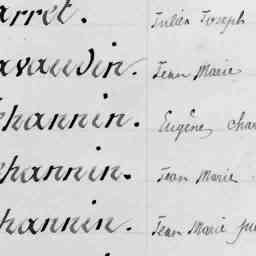 arret. Julien Joseph
avaudin. Jean Marie
channin. Eugène
channin. Jean Marie
channin. Jean Marie